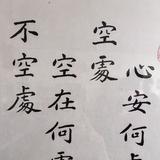 心安何處
空處
空在何處
不空處